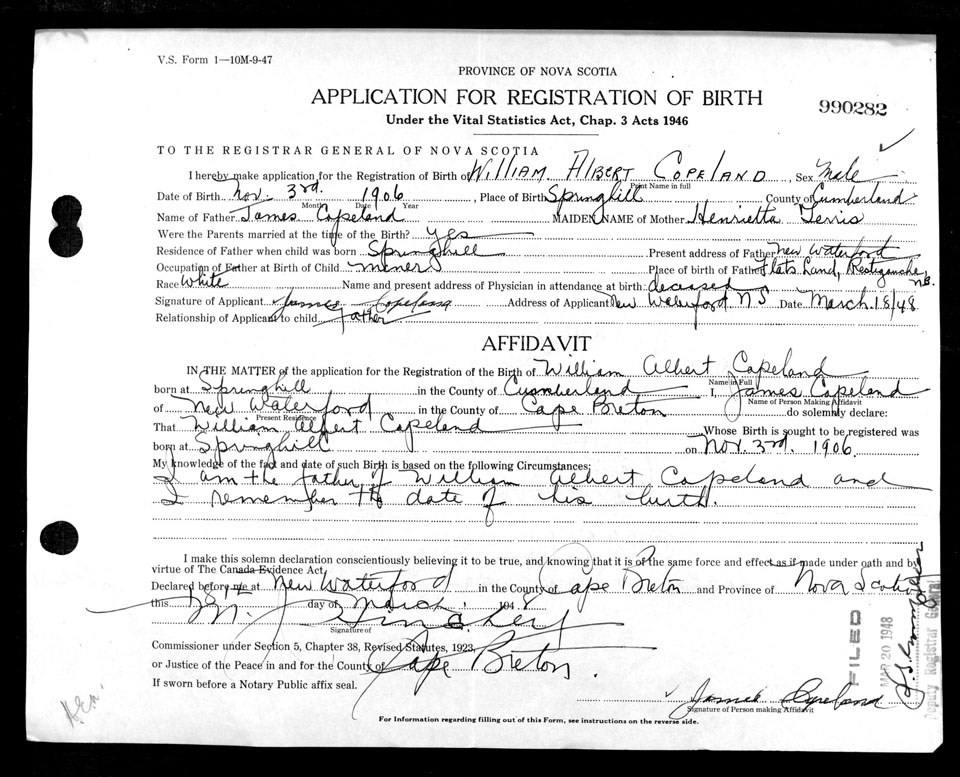 V.S. Form 1—10M-9-47
PROVINCE OF NOVA SCOTIA
APPLICATION FOR REGISTRATION OF BIRTH
990282
Under the Vital Statistics Act, Chap. 3 Acts 1946
TO THE REGISTRAR GENERAL OF NOVA SCOTIA
I hereby make application for the Registration of Birth of William Albert Copeland, Sex Male
Print Name in full
Date of Birth Nov. 3rd. 1906, Place of Birth Springhill County of Cumberland
Month Date Year
Name of Father James Copeland MAIDEN NAME of Mother Henrietta Ferris
Were the Parents married at the time of the Birth? yes
Residence of Father when child was born Springhill Present address of Father New Waterford
Occupation of Father at Birth of Child miner Place of birth of Father Flats Land, Restigouche, N.B.
Race White Name and present address of Physician in attendance at birth deceased
Signature of Applicant James Copeland Address of Applicant New Waterford N S Date March 18/48
Relationship of Applicant to child Father
AFFIDAVIT
IN THE MATTER of the application for the Registration of the Birth of William Albert Copeland
Name in Full
born at Springhill in the County of Cumberland I, James Copeland
Name of Person Making Affidavit
of New Waterford in the County of Cape Breton do solemnly declare:
Present Residence
That William Albert Copeland Whose Birth is sought to be registered was
born at Springhill on Nov. 3rd. 1906.
My knowledge of the fact and date of such Birth is based on the following Circumstances:
I am the father of William Albert Copeland and
I remember the date of his birth.
I make this solemn declaration conscientiously believing it to be true, and knowing that it is of the same force and effect as if made under oath and by
virtue of The Canada Evidence Act,
Declared before me at New Waterford in the County of Cape Breton and Province of Nova Scotia
this 18 day of March 1948
Signature of
Commissioner under Section 5, Chapter 38, Revised Statutes, 1923,
or Justice of the Peace in and for the County of Cape Breton
If sworn before a Notary Public affix seal.
James Copeland
Signature of Person making Affidavit
For Information regarding filling out of this Form, see instructions on the reverse side.
FILED
MAR 20 1948
Deputy Registrar General